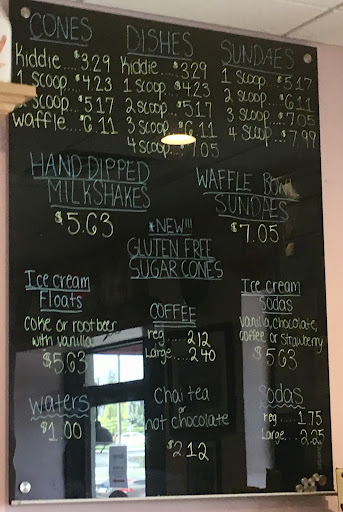 CONES
Kiddie...$3.29
1 scoop...$4.23
2 scoop...$5.17
waffle...$6.11
DISHES
Kiddie.....$3.29
1 scoop...$4.23
2 scoop...$5.17
3 scoop...$6.11
4 scoop...$7.05
SUNDAES
1 scoop...$5.17
2 scoop...$6.11
3 scoop...$7.05
4 scoop...$7.99
HAND DIPPED
MILKSHAKES
$5.63
WAFFLE BOWL
SUNDAES
$7.05
*NEW!!!
GLUTEN FREE
SUGAR CONES
Ice cream
Floats
coke or rootbeer
with vanilla
$5.63
COFFEE
reg....2.12
Large....2.40
Ice cream
Sodas
vanilla, chocolate,
coffee or strawberry
$5.63
waters
$1.00
Chai tea
or
hot chocolate
$2.12
Sodas
reg....1.75
Large....2.25